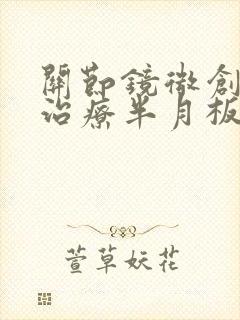 關節鏡微創
治療半月板
萱草妖花